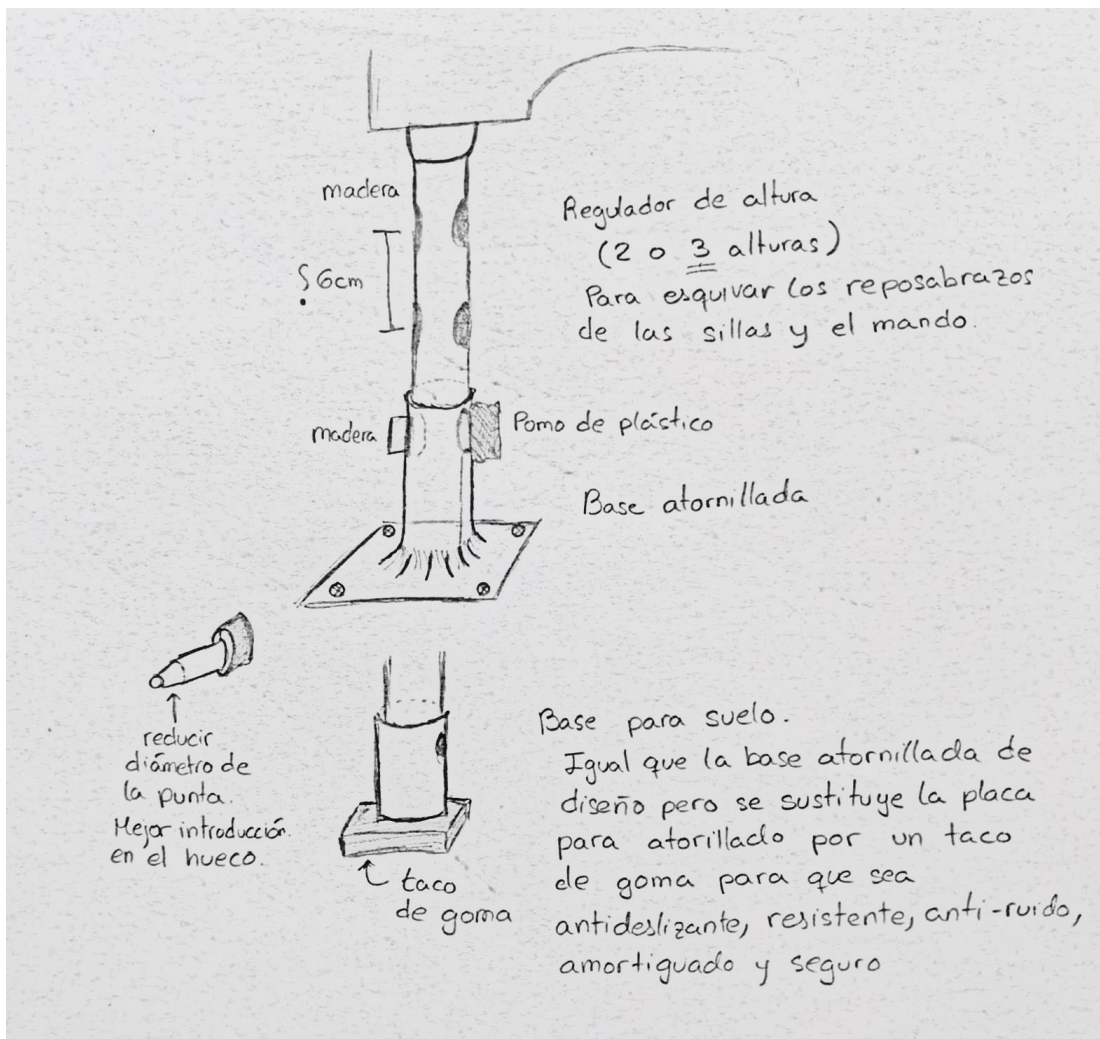 madera
6cm
Regulador de altura
(2 o 3 alturas)
Para esquivar los reposabrazos
de las sillas y el mando.
madera
Pomo de plástico
Base atornillada
reducir
diámetro de
la punta.
Mejor introducción.
en el hueco.
taco
de goma
Base para suelo.
Igual que la base atornillada de
diseño pero se sustituye la placa
para atorillado por un taco
de goma para que sea
antideslizante, resistente, anti-ruido,
amortiguado y seguro